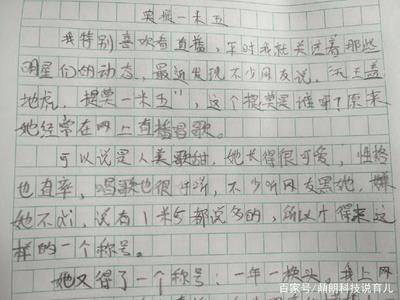 实撮一米五
我特别喜欢看直播，平时我就关注着那些
明星们的动态，最近发现不少网友说，"天王盖
地虎，提莫一米五"，这个提莫是谁呀？原来
她经常在网上直播唱歌。
可以说是人美歌甜，她长得很可爱，性格
也直率，唱歌也很好听，不少网友黑她，嫌
她不高，说有1米5都说多的，所以才得来这
样的一个称号。
她又得了一个称号：一年一换头，我上网
百家号/鼎朗科技说育儿